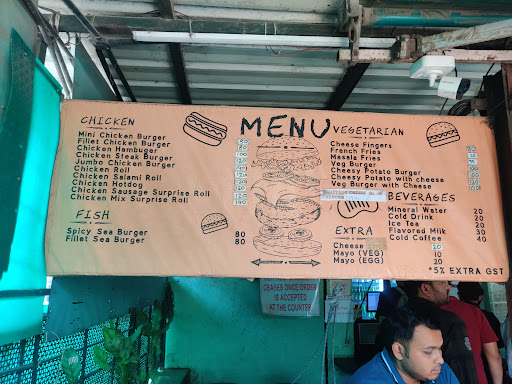 MENU
CHICKEN
Mini Chicken Burger
Fillet Chicken Burger
Chicken Hamburger
Chicken Steak Burger
Jumbo Chicken Burger
Chicken Roll
Chicken Salami Roll
Chicken Hotdog
Chicken Sausage Surprise Roll
Chicken Mix Surprise Roll
FISH
Spicy Sea Burger 80
Fillet Sea Burger 80
VEGETARIAN
Cheese Fingers
French Fries
Masala Fries
Veg Burger
Cheesy Potato Burger
Cheesy Potato with cheese
Veg Burger with Cheese
BEVERAGES
Mineral Water 20
Cold Drink 20
Ice Tea 20
Flavored Milk 30
Cold Coffee 40
EXTRA
Cheese 20
Mayo (VEG) 10
Mayo (EGG) 20
*5% EXTRA GST
CEASES ONCE ORDER
IS ACCEPTED
AT THE COUNTER